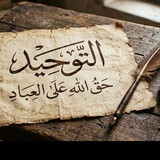 التَّوحِيد
حَقُّ اللهِ عَلَى العِبَادِ